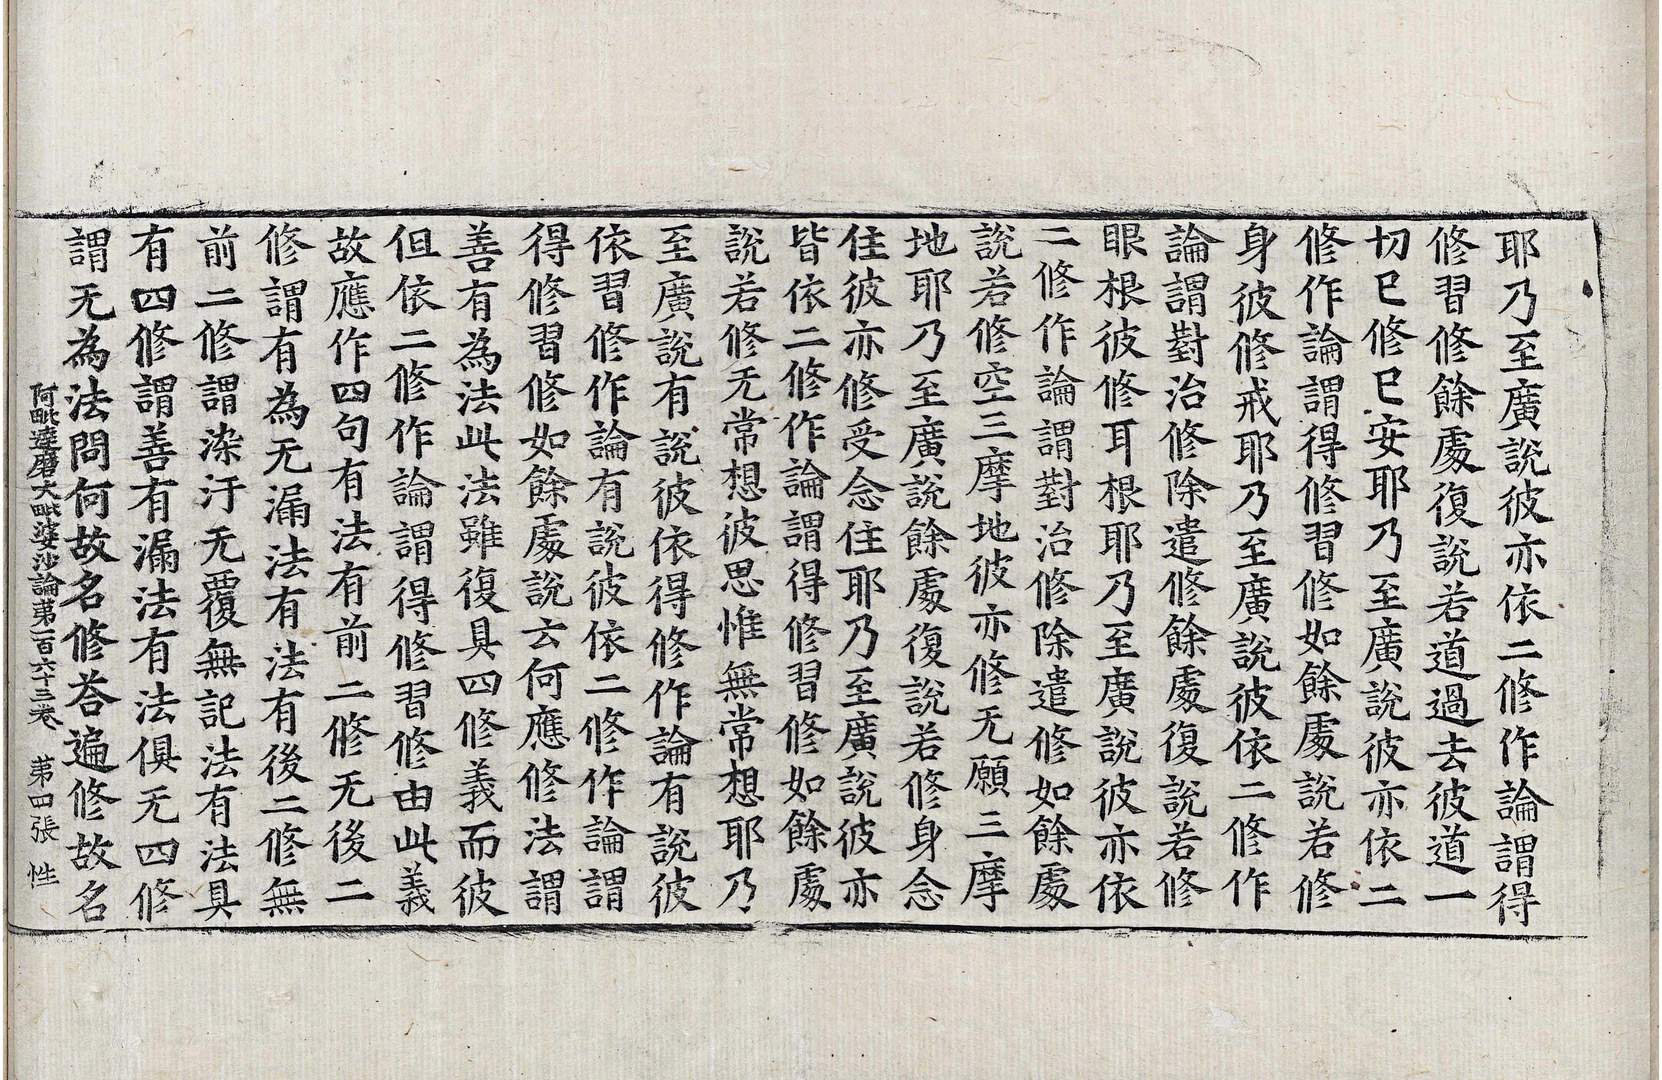 耶乃至廣說彼亦依二修作論謂得
修習修餘處復說若道過去彼道一
切已修已安耶乃至廣說彼亦依二
修作論謂得修習修如餘處說若修
身彼修戒耶乃至廣說彼依二修作
論謂對治修除遣修餘處復說若修
眼根彼修耳根耶乃至廣說彼亦依
二修作論謂對治修除遣修如餘處
說若修空三摩地彼亦修无願三摩
地耶乃至廣說餘處復說若修身念
住彼亦修受念住耶乃至廣說彼亦
皆依二修作論謂得修習修如餘處
說若修无常想彼思惟無常想耶乃
至廣說有說彼依得修作論有說彼
依習修作論有說彼依二修作論謂
得修習修如餘處說云何應修法謂
善有為法此法雖復具四修義而彼
但依二修作論謂得修習修由此義
故應作四句有法有前二修无後二
修謂有為无漏法有法有後二修無
前二修謂染汙无覆無記法有法具
有四修謂善有漏法有法俱无四修
謂无為法問何故名修荅遍修故名
阿毗達磨大毗婆沙論第一百六十三卷　第四張　性